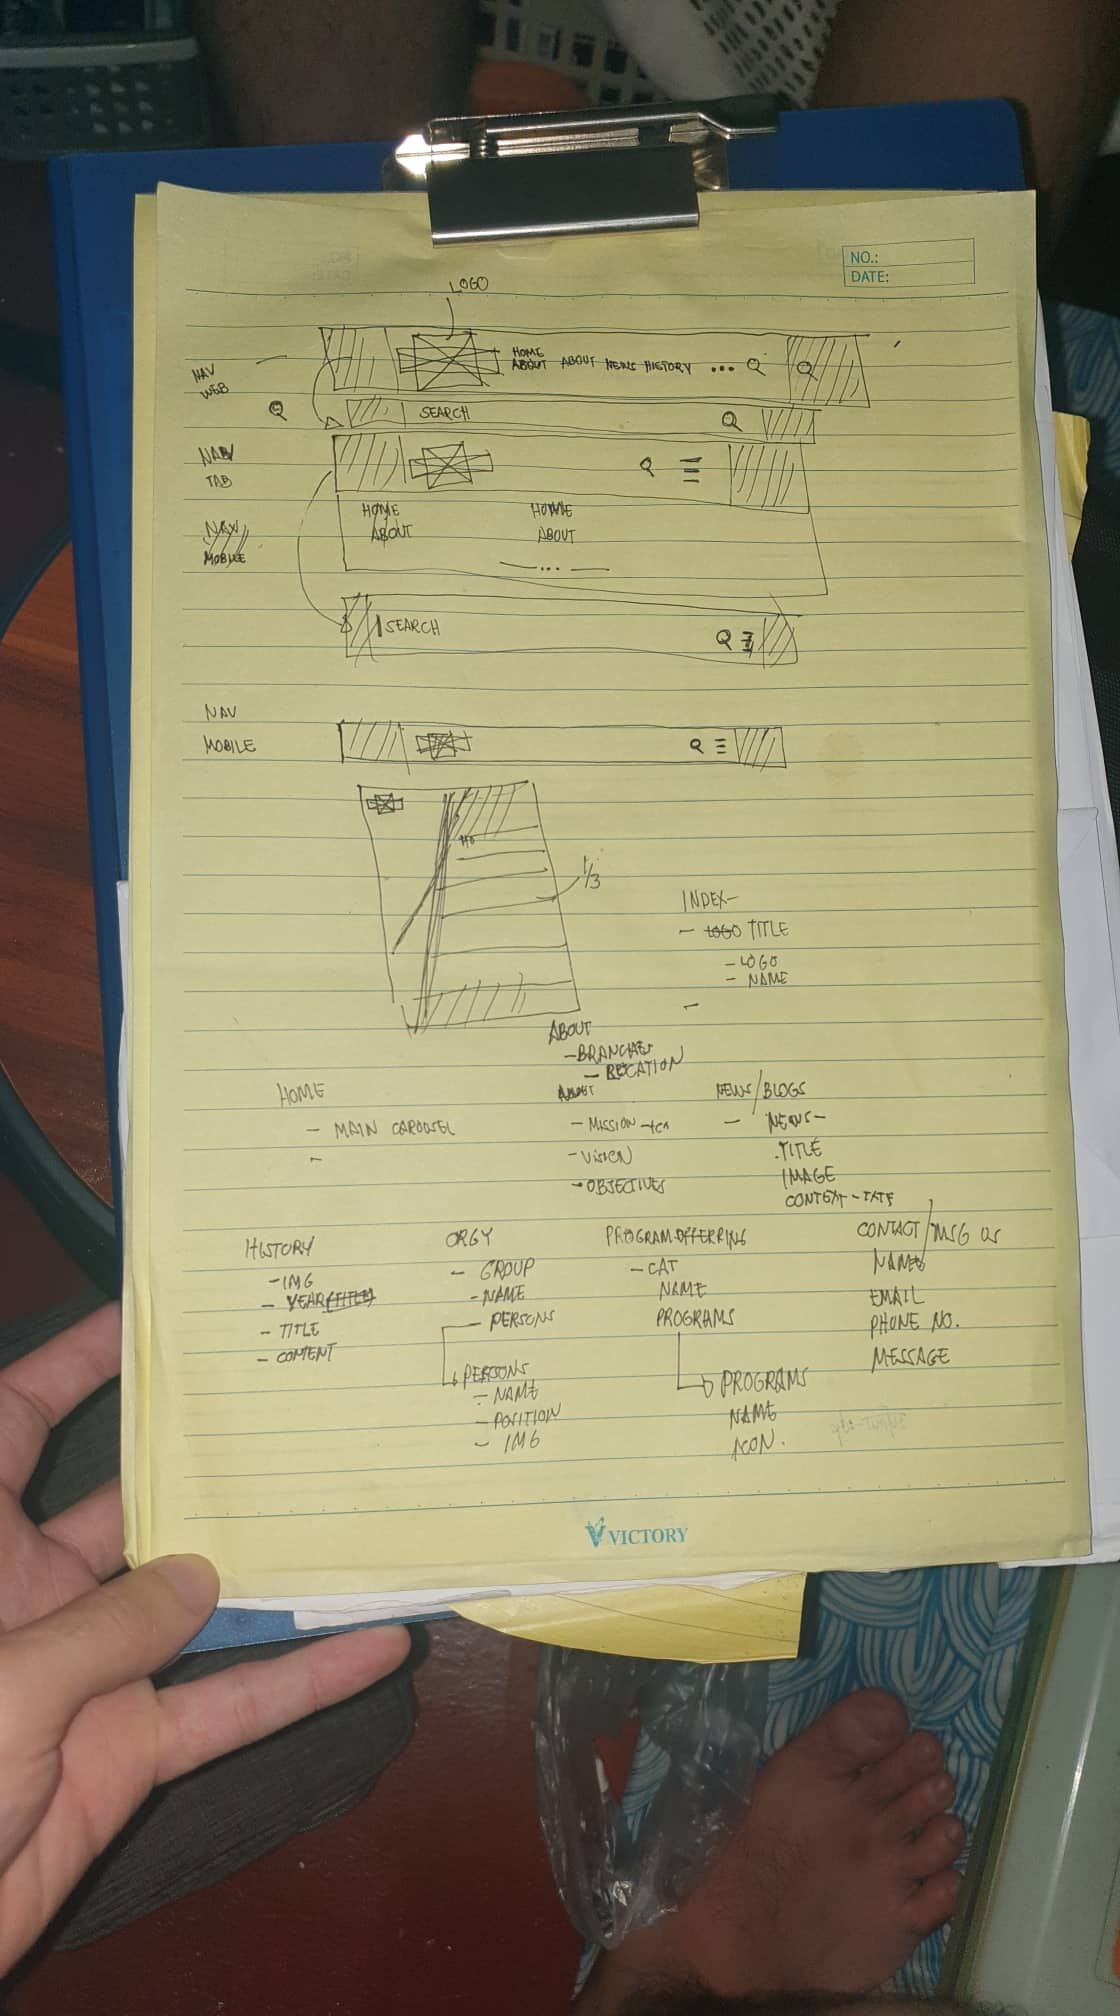 NO.:
DATE:
LOGO
NAV
WEB
HOME
ABOUT ABOUT NEWS HISTORY ...
SEARCH
NAV
TAB
HOME
ABOUT
HOME
ABOUT
...
NAV
MOBILE
SEARCH
NAV
MOBILE
HO
1/3
INDEX-
- LOGO TITLE
- LOGO
- NAME
-
ABOUT
- BRANCHES
- LOCATION
HOME
- MAIN CAROUSEL
-
ABOUT
- MISSION
- VISION
- OBJECTIVES
NEWS/BLOGS
- NEWS-
.TITLE
IMAGE
CONTEXT-
HISTORY
- IMG
- YEAR (TITLE)
- TITLE
- CONTENT
ORGY
- GROUP
- NAME
- PERSONS
PERSONS
- NAME
- POSITION
- IMG
PROGRAM OFFERRING
- CAT
NAME
PROGRAMS
PROGRAMS
NAME
ICON.
CONTACT/MSG US
NAME
EMAIL
PHONE NO.
MESSAGE
VICTORY